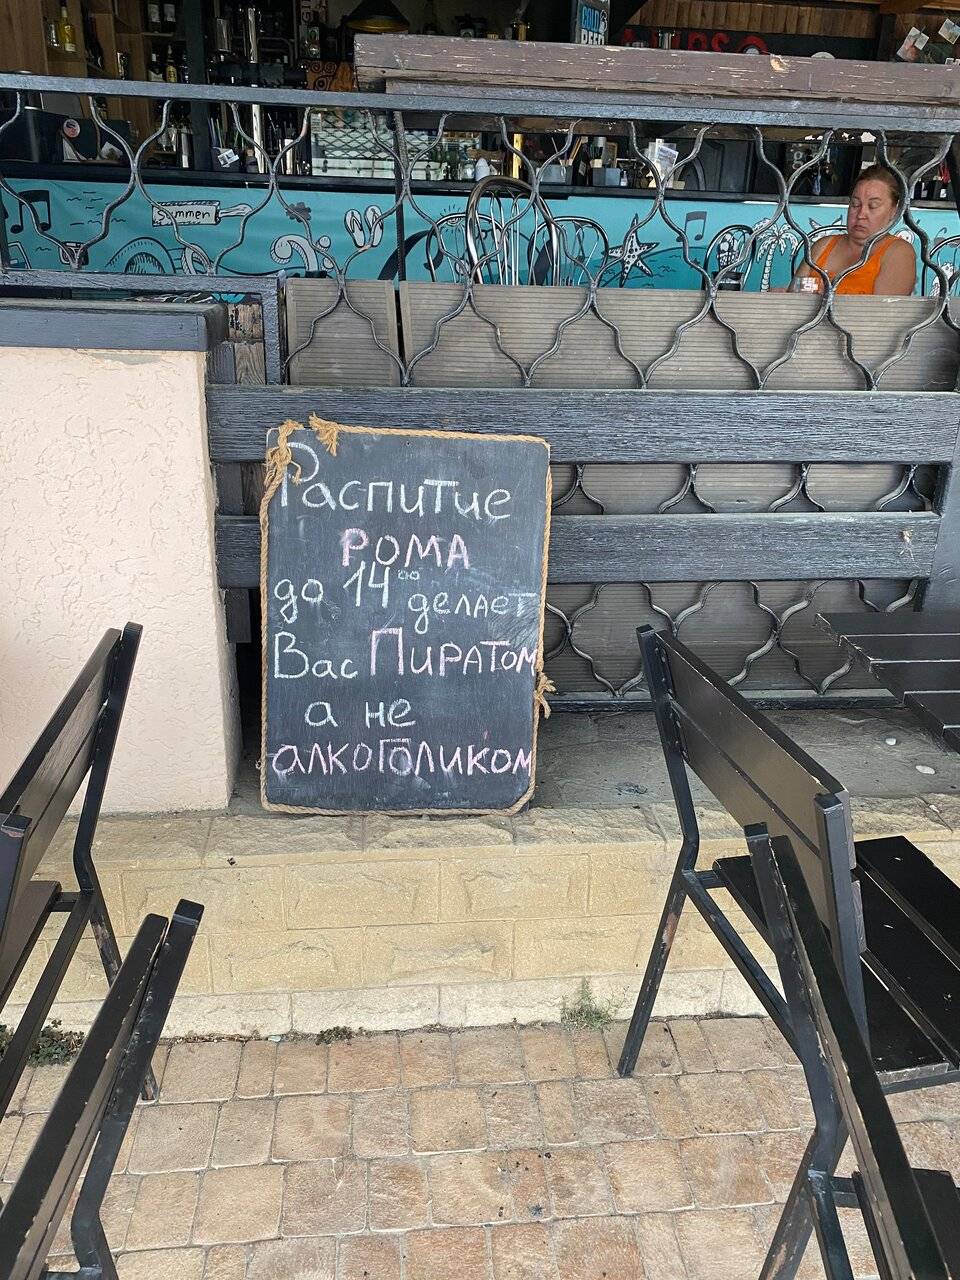 COLD
BEER
Summer
Распитие
РОМА
до 14⁰⁰ делает
Вас ПИРАТОМ
а не
алкоголиком